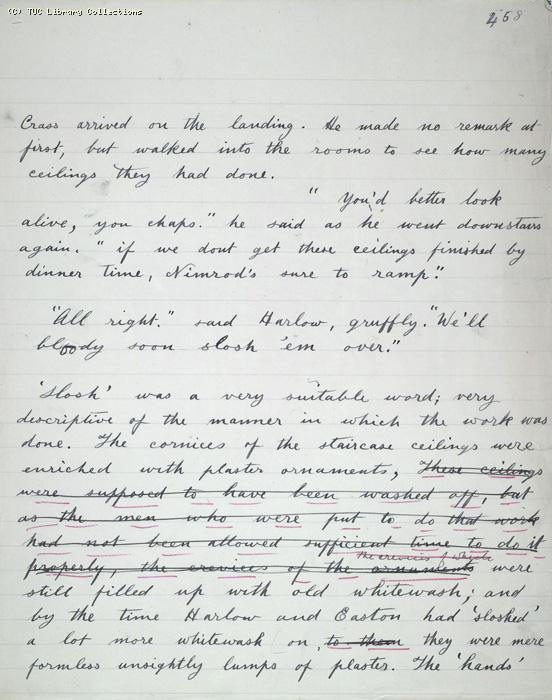 (C) TUC Library Collections
458
Crass arrived on the landing. He made no remark at
first, but walked into the rooms to see how many
ceilings they had done.
" You'd better look
alive, you chaps." he said as he went downstairs
again. " if we dont get these ceilings finished by
dinner time, Nimrod's sure to ramp."
"All right." said Harlow, gruffly. "We'll
bloody soon slosh 'em over."
'Slosh' was a very suitable word; very
descriptive of the manner in which the work was
done. The cornices of the staircase ceilings were
enriched with plaster ornaments, These ceilings
were supposed to have been washed off, but
as the men who were put to do that work
had not been allowed sufficient time to do it
the crevices of which
properly, the crevices of the ornaments were
still filled up with old whitewash; and
by the time Harlow and Easton had 'sloshed'
a lot more whitewash on, to them they were mere
formless unsightly lumps of plaster. The 'hands'